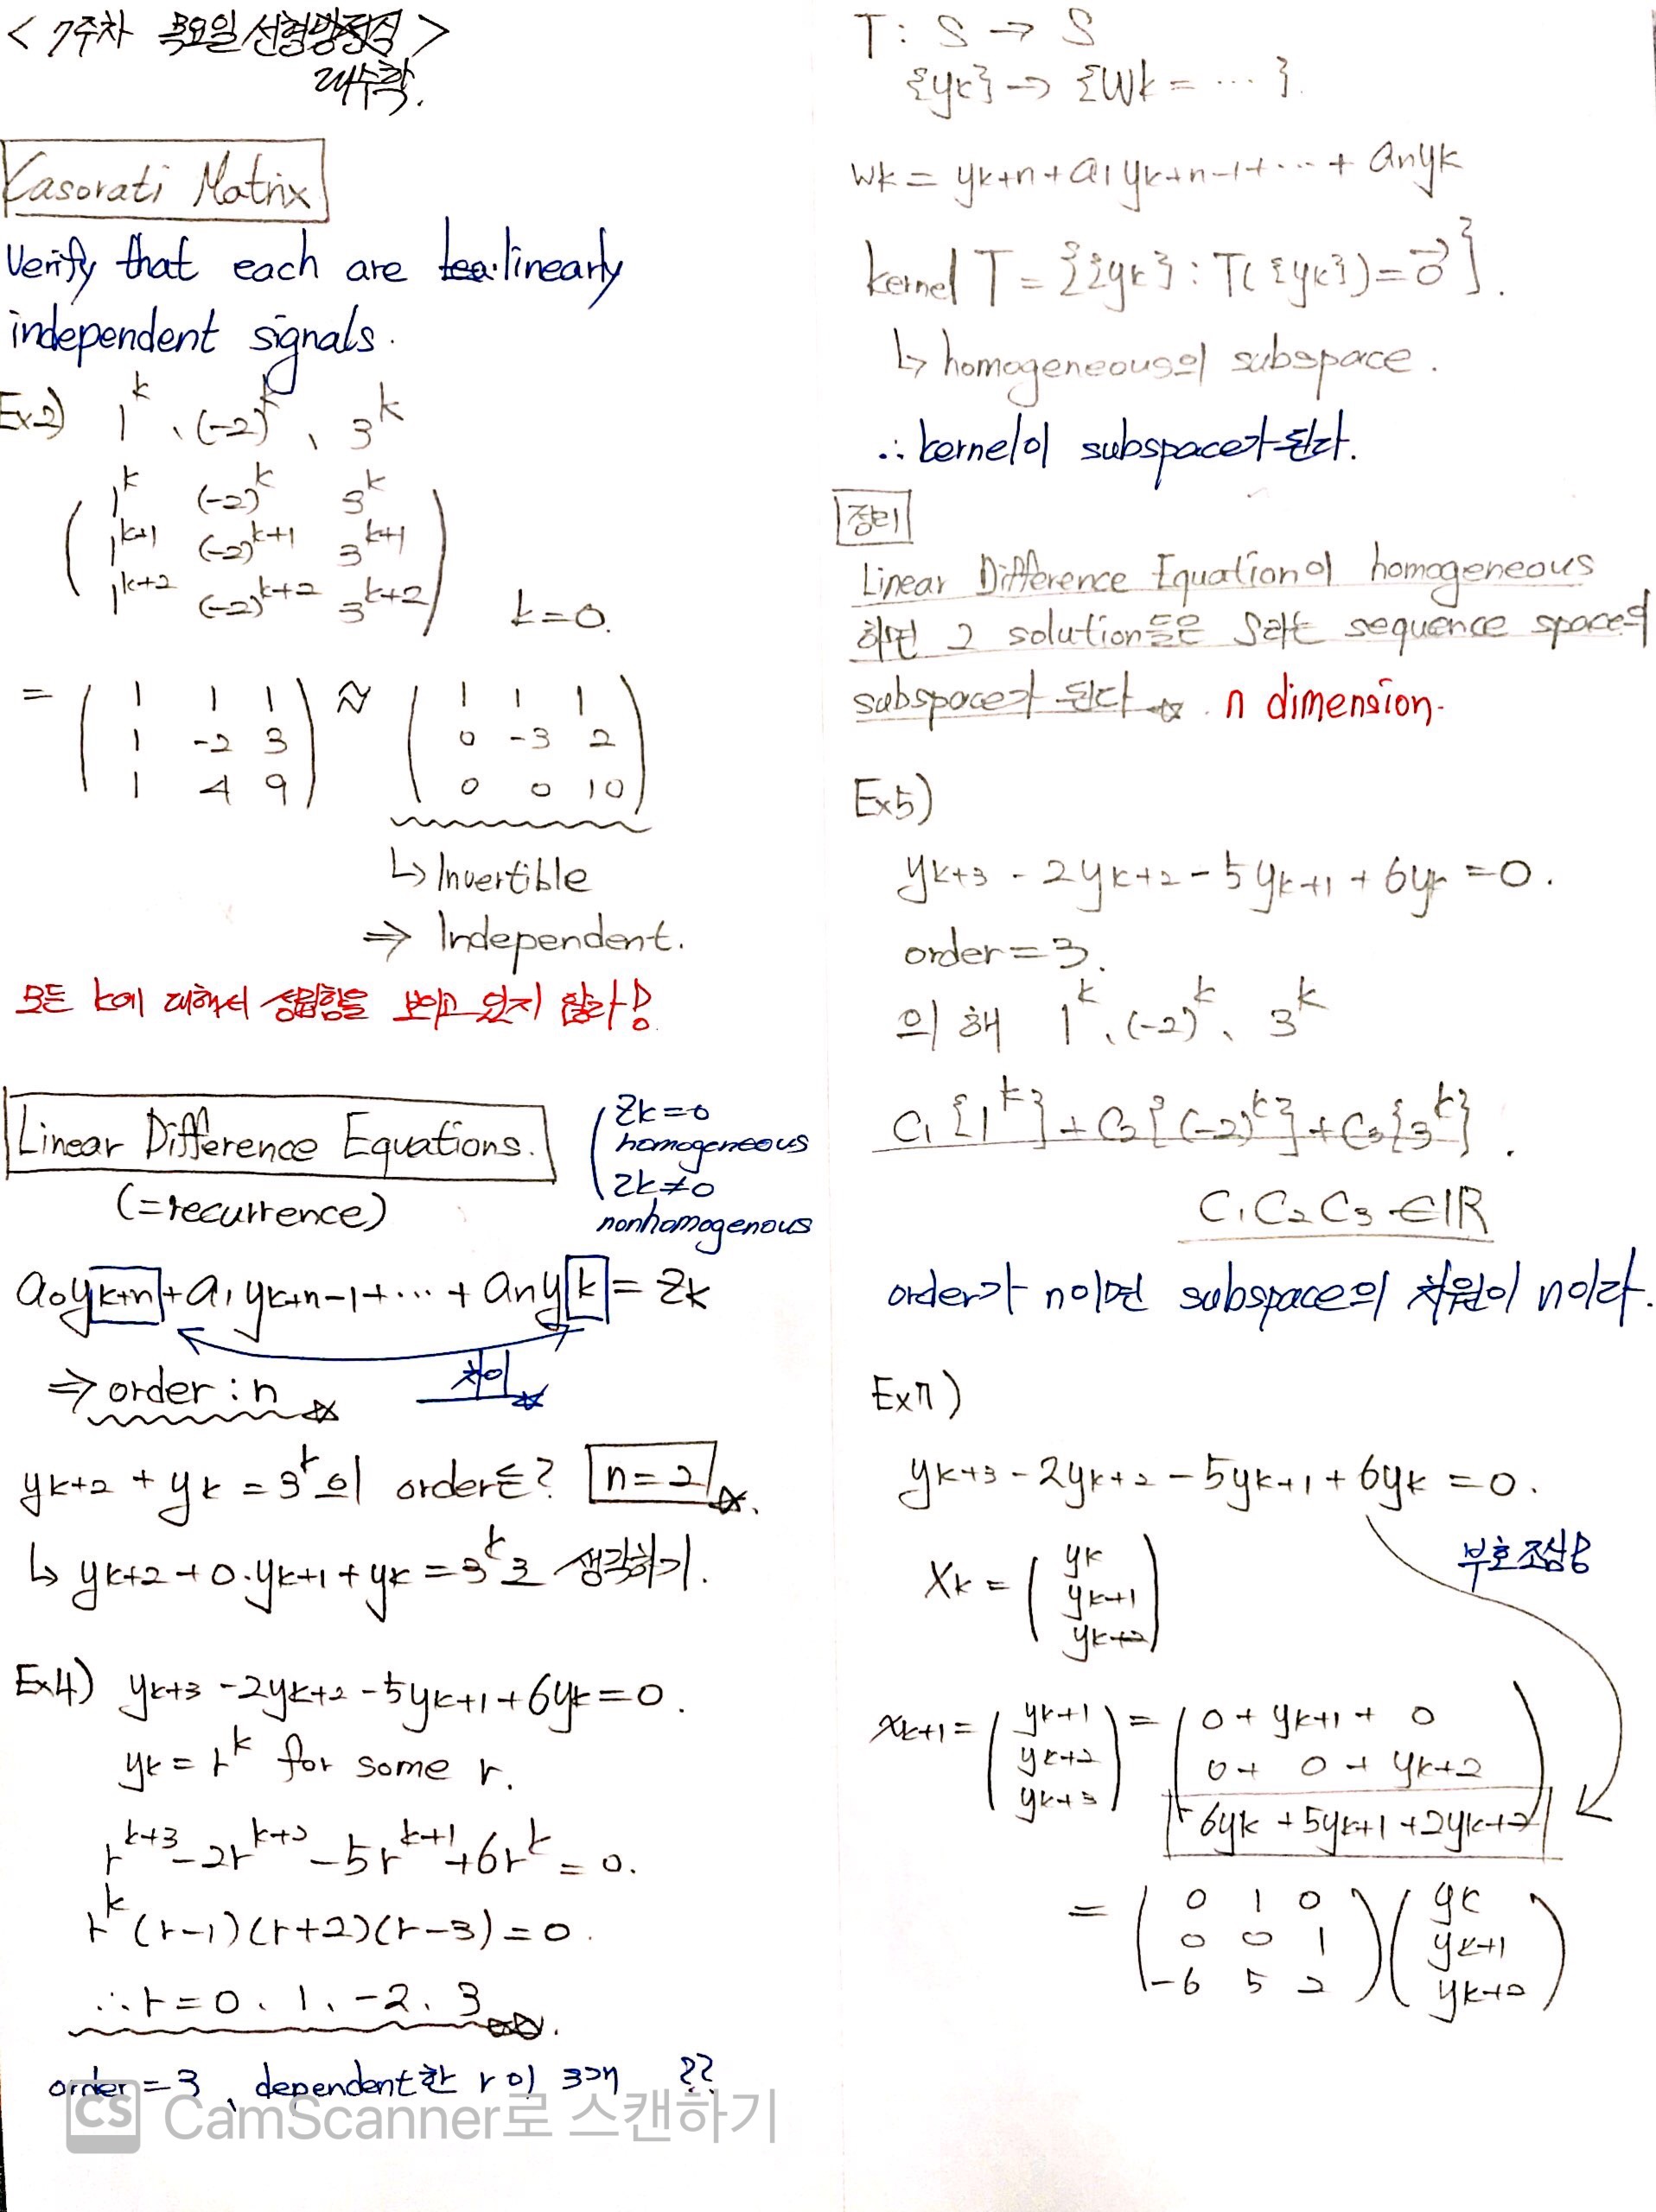 < 7주차 목요일 선형방정식 >
대수학.
Kasorati Matrix
Verify that each are linearly
independent signals.
Ex2) 1^k、(-2)^k、3^k
( 1^k (-2)^k 3^k
1^k+1 (-2)^k+1 3^k+1
1^k+2 (-2)^k+2 3^k+2 ) k=0.
= ( 1 1 1 ) ≈ ( 1 1 1 )
1 -2 3 0 -3 2
1 4 9 0 0 10
↳ Invertible
⇒ Independent.
모든 k에 대해서 성립함을 보이고 있지 않다!
Linear Difference Equations.
(=recurrence)
zk=0
homogeneous
zk≠0
nonhomogenous
a0yk+n+a1yk+n-1+…+anyk=zk
⇒ order : n ☆ 차이 ☆
yk+2 + yk = 3^k의 order는? n=2 ☆.
↳ yk+2+0·yk+1+yk=3^k로 생각하기.
Ex4) yk+3-2yk+2-5yk+1+6yk=0.
yk=r^k for some r.
r^k+3-2r^k+2-5r^k+1+6r^k=0.
r^k(r-1)(r+2)(r-3)=0.
∴r=0、1、-2、3 ☆☆.
order=3、dependent한 r이 3개 ??
CS CamScanner로 스캔하기
T: S → S
{yk} → {Wk = … }.
wk= yk+n+a1yk+n-1+…+ anyk
kernel T = {{yk} : T({yk})=0⃗}.
↳ homogeneous의 subspace.
∴ kernel이 subspace가 된다.
정리
Linear Difference Equation이 homogeneous
하면 그 solution들은 S라는 sequence space의
subspace가 된다 ☆. n dimension.
Ex5)
yk+3 - 2yk+2-5yk+1+6yk=0.
order=3.
의 해 1^k、(-2)^k、3^k
C1{1^k}+C2{(-2)^k}+C3{3^k}.
C1C2C3∈IR
order가 n이면 subspace의 차원이 n이다.
Ex7)
yk+3-2yk+2-5yk+1+6yk=0.
부호조심!
Xk = ( yk
yk+1
yk+2 )
xk+1= ( yk+1 ) = ( 0 + yk+1 + 0 )
yk+2 0 + 0 + yk+2
yk+3 -6yk+5yk+1+2yk+2
= ( 0 1 0 ) ( yk )
0 0 1 yk+1
-6 5 2 yk+2